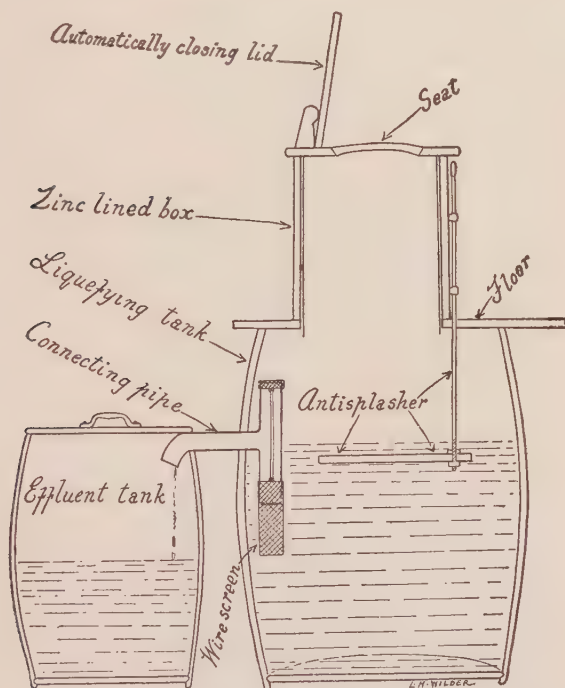 Automatically closing lid
Seat
Zinc lined box
Liquefying tank
Floor
Connecting pipe
Antisplasher
Effluent tank
Wire screen
L.H.WILDER